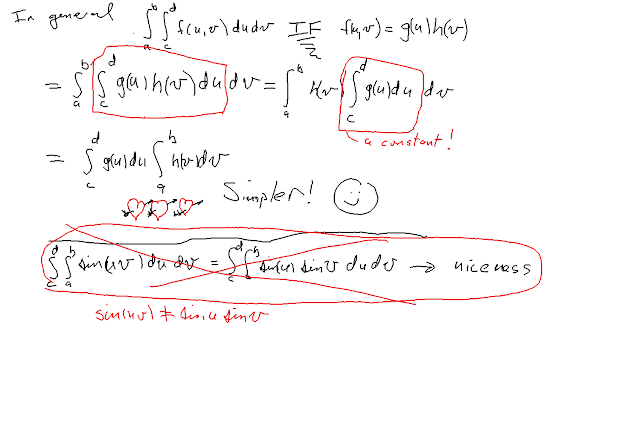 In general ∫_a^b ∫_c^d f(u,v) du dv IF f(u,v) = g(u) h(v)
= ∫_a^b ∫_c^d g(u) h(v) du dv = ∫_a^b h(v) ∫_c^d g(u) du dv
a constant!
= ∫_c^d g(u) du ∫_a^b h(v) dv
Simpler!
∫_c^d ∫_a^b sin(uv) du dv = ∫_c^d ∫_a^b sin(u) sin v du dv → niceness
sin(uv) ≠ sin u sin v